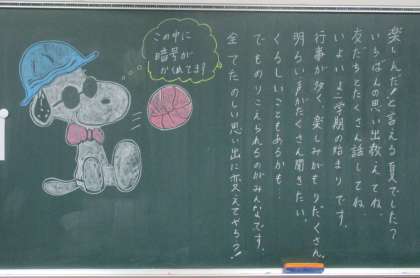 楽しんだ!と言える夏でした?
いちばんの思い出教えてね。
友だちとたくさん話してね。
いよいよ二学期の始まりです。
行事が多く、楽しみがもりだくさん。
明るい声がたくさん聞きたい。
くるしいこともあるかも…
でものりこえられるのがみんなです。
全てたのしい思い出に変えてやろう?!
この中に
暗号が
かくれてます